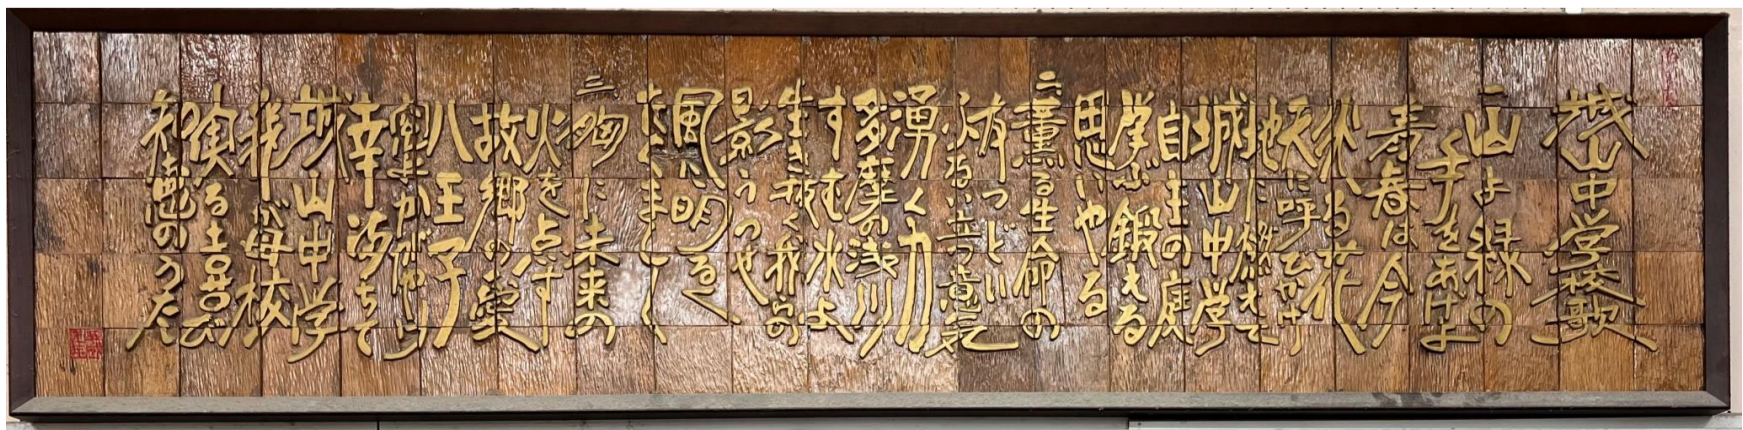 城山中学校歌
一、山よ緑の
手をあげよ
青春は今
花
天に呼びかけ
地に燃えて
城山中学
自主の庭
学ぶ鍛える
思いやる
二、薫る生命の
友つどい
い立つ意気
湧く力
多摩の浅川
すむ水よ
生き抜く我らの
影うつせ
風は明るく
たくましく
三、胸に未来の
火を点す
故郷の
八王子
窓よかがやけ
幸満ちて
城山中学
我が母校
実る喜び
知恵のうた